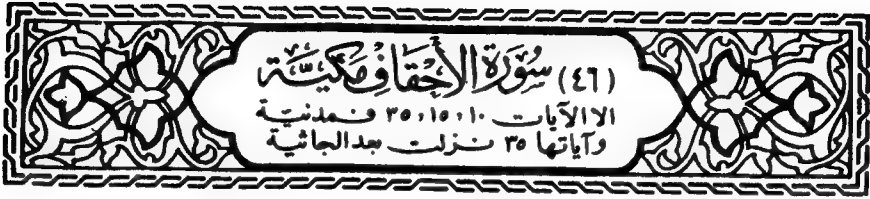 (٤٦) سُورَة الأَحْقَافِ مَكيَّة
الا الآيات ١٠، ١٥، ٣٥ فمدنيّة
وآياتها ٣٥ نزلت بعد الجاثية